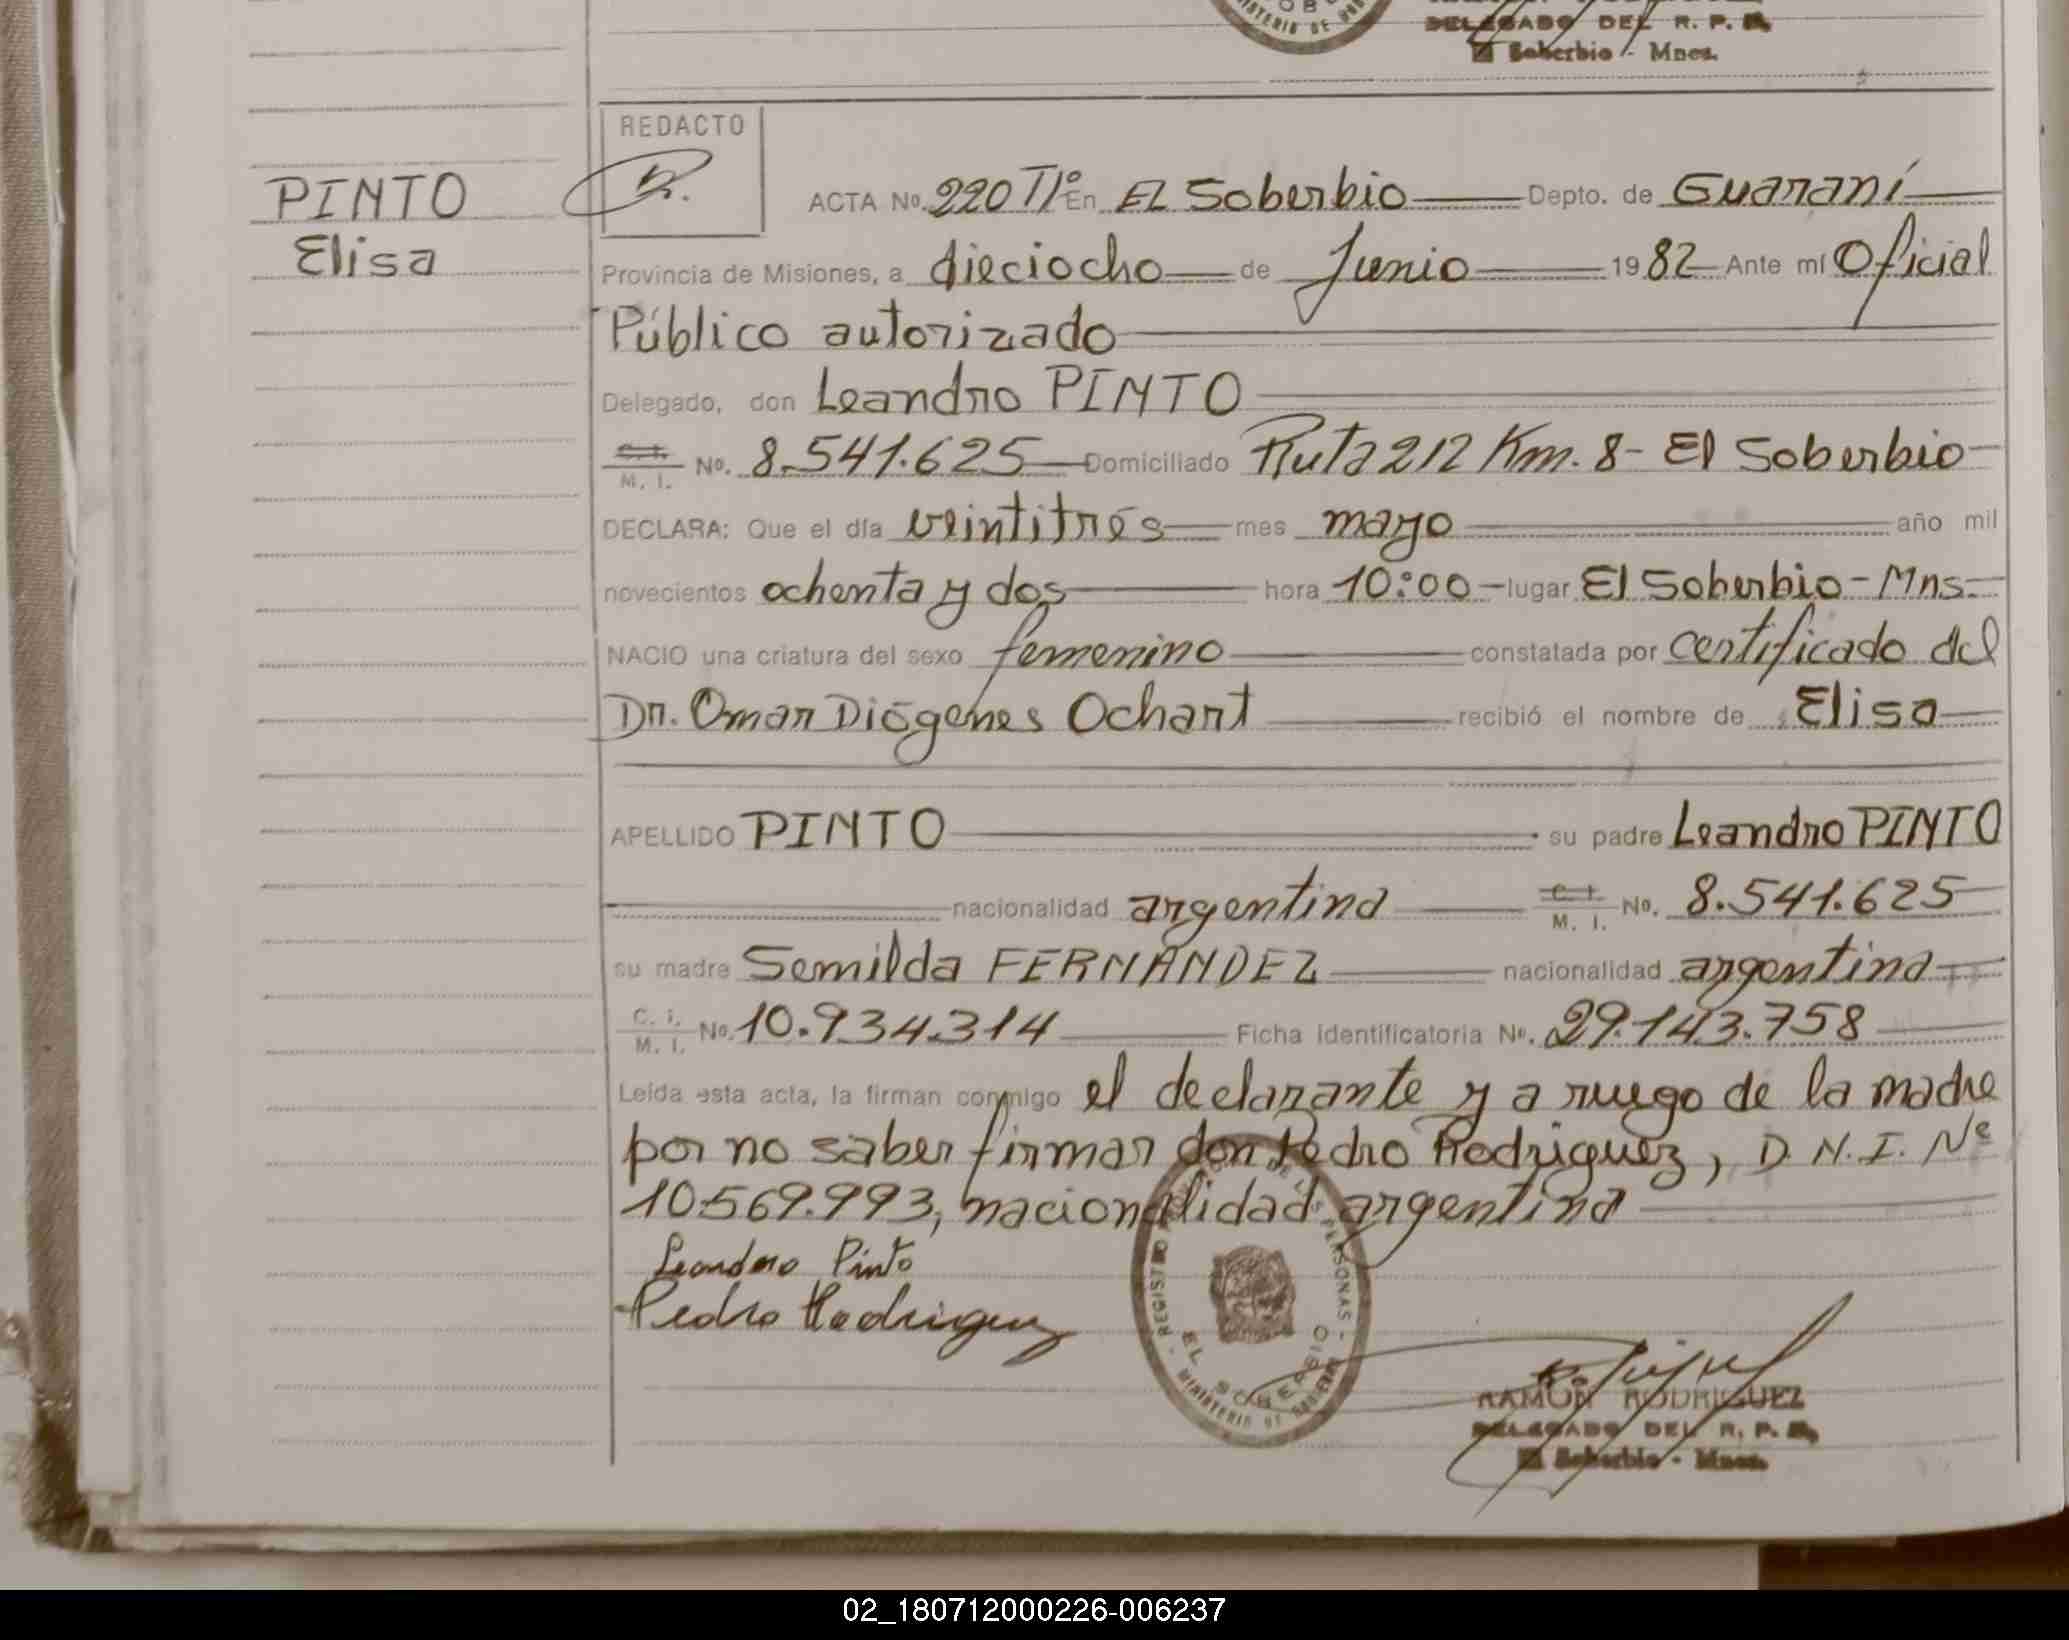 MINISTERIO DE GOB
DELEGADO DEL R. P. P.
El Soberbio - Mnes.
REDACTO
PINTO
Elisa
ACTA No. 220 Tº En El Soberbio Depto. de Guaraní
Provincia de Misiones, a dieciocho de Junio 1982 Ante mí Oficial
Público autorizado
Delegado, don Leandro PINTO
C. I. M. I. No. 8.541.625 Domiciliado Ruta 212 Km. 8 - El Soberbio
DECLARA: Que el día veintitrés mes mayo año mil
novecientos ochenta y dos hora 10:00 - lugar El Soberbio - Mns.
NACIO una criatura del sexo femenino constatada por certificado del
Dr. Omar Diógenes Ochart recibió el nombre de Elisa
APELLIDO PINTO su padre Leandro PINTO
nacionalidad argentina C. I. M. I. No. 8.541.625
su madre Semilda FERNÁNDEZ nacionalidad argentina
C. I. M. I. No. 10.934.314 Ficha identificatoria No. 29.143.758
Leída esta acta, la firman conmigo el declarante y a ruego de la madre
por no saber firmar don Pedro Rodriguez, D.N.I. Nº
10.569.993, nacionalidad argentina
Leandro Pinto
Pedro Rodriguez
REGISTRO DE LAS PERSONAS - MINISTERIO DE GOBIERNO -
EL SOBERBIO
RAMÓN RODRIGUEZ
DELEGADO DEL R. P. P.
El Soberbio - Mnes.
02_180712000226-006237